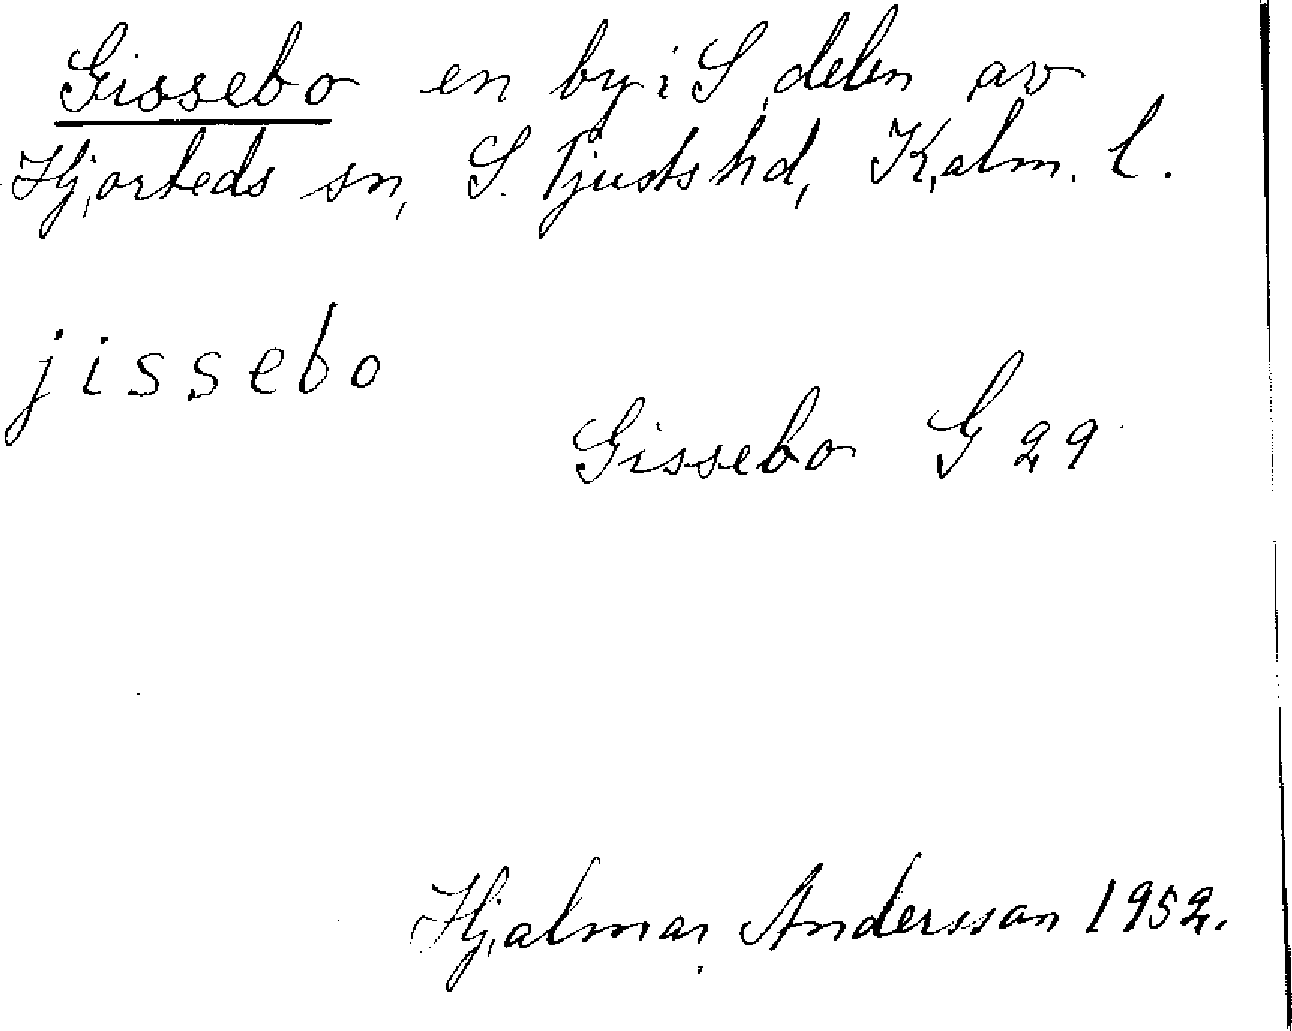 Gissebo en by i S delen av
Hjorteds sn, S. Tjusts hd, Kalm. l.
jissebo
Gissebo G 29
Hjalmar Andersson 1952.